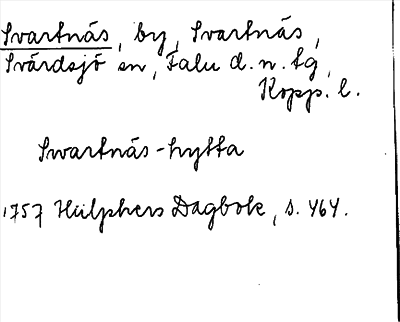 Svartnäs, by, Svartnäs,
Svärdsjö sn, Falu d. n. tg,
Kopp. l.
Swartnäs-hytta
1757 Hülphers Dagbok, s. 464.